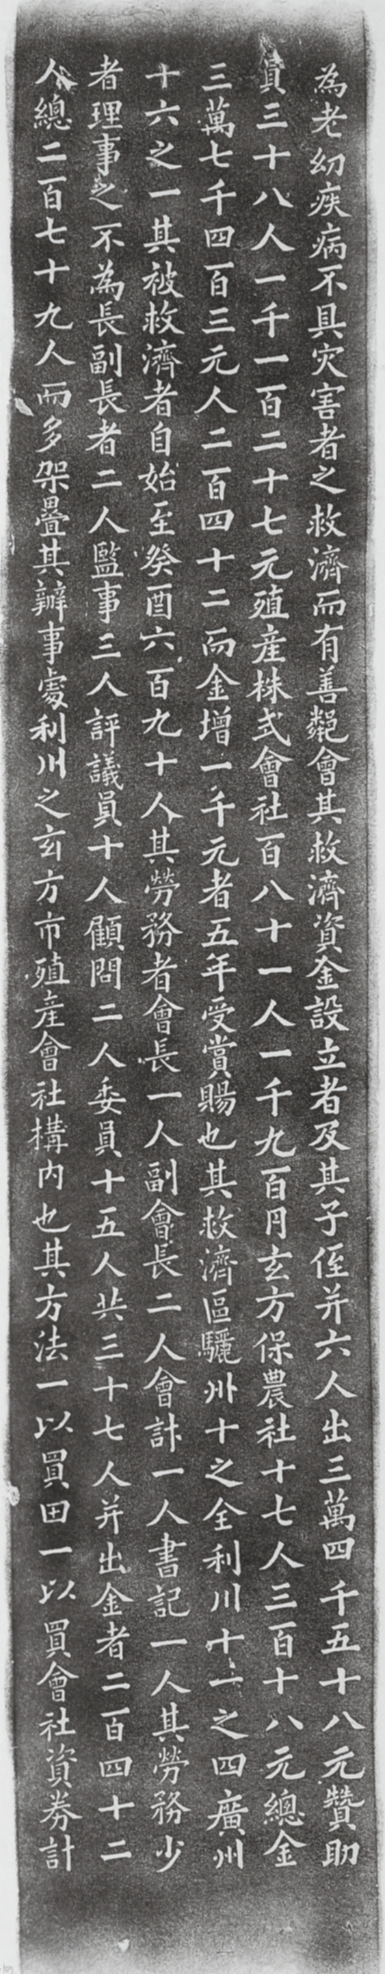 為老幼疾病不具灾害者之救濟而有善䕃會其救濟資金設立者及其子侄并六人出三萬四千五十八元贊助
員三十八人一千一百二十七元殖産株式會社百八十一人一千九百円玄方保農社十七人三百十八元總金
三萬七千四百三元人二百四十二而金增一千元者五年受賞賜也其救濟區驪州十之全利川十一之四廣州
十六之一其被救濟者自始至癸酉六百九十人其勞務者會長一人副會長二人會計一人書記一人其勞務少
者理事之不為長副長者二人監事三人評議員十人顧問二人委員十五人共三十七人并出金者二百四十二
人總二百七十九人而多架疊其辦事處利川之玄方市殖産會社構内也其方法一以買田一以買會社資券計